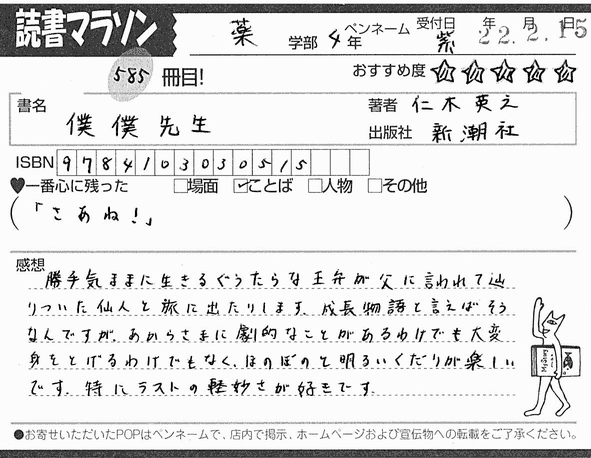 読書マラソン
薬 学部 4年 ペンネーム 紫 受付日 年 月 日 22.2.15
585 冊目! おすすめ度 ☆☆☆☆☆
書名 僕僕先生
著者 仁木英之
出版社 新潮社
ISBN 9784103030515
♥一番心に残った □場面 ☑ことば □人物 □その他
(「さあね!」)
感想
勝手気ままに生きるぐうたらな王弁が父に言われて辿
りついた仙人と旅に出たりします。成長物語と言えばそう
なんですが、あからさまに劇的なことがあるわけでも大変
身をとげるわけでもなく、ほのぼのと明るいくだりが楽しい
です。特にラストの軽妙さが好きです。
Mystery
●お寄せいただいたPOPはペンネームで、店内で掲示、ホームページおよび宣伝物への転載をご了承ください。